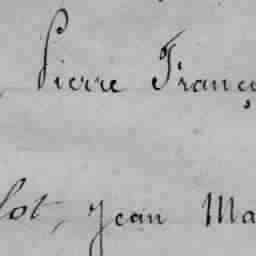 Pierre Franç
lot, Jean Ma